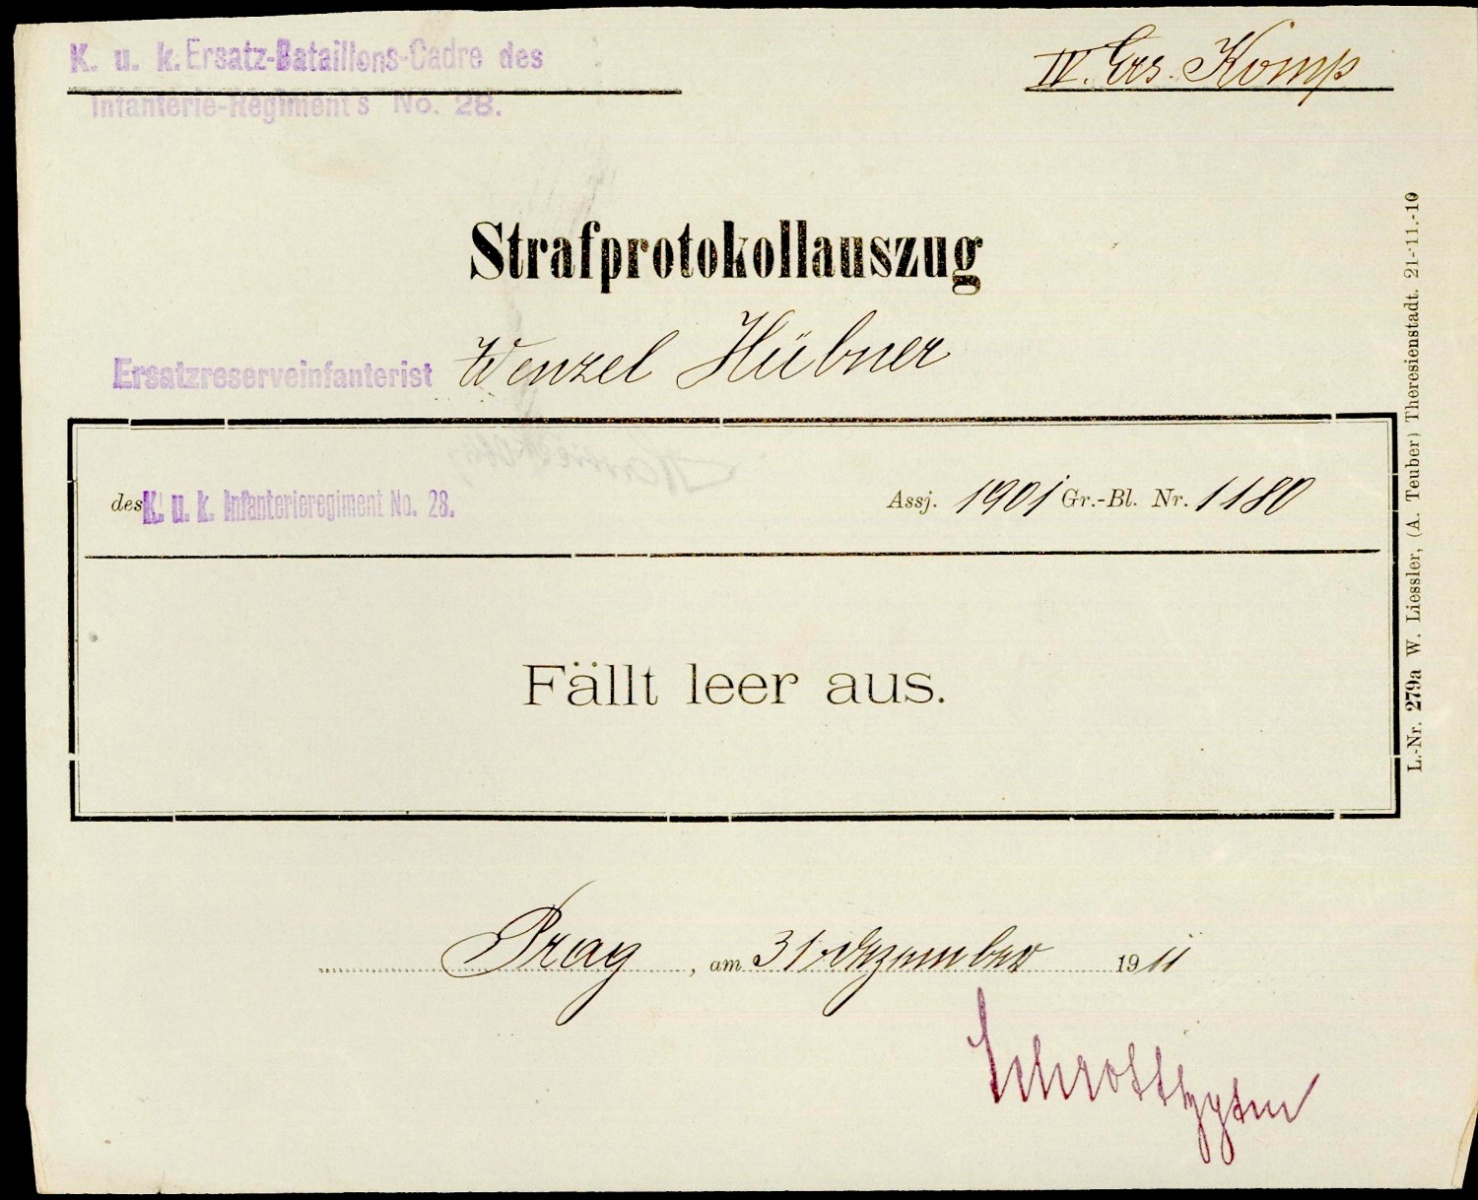 K. u. k. Ersatz-Bataillons-Cadre des
Infanterie-Regiment's No. 28.
IV. Ers. Komp
Strafprotokollauszug
Ersatzreserveinfanterist Wenzel Hübner
des K. u. k. Infanterieregiment No. 28. Assj. 1901 Gr.-Bl. Nr. 1180
Fällt leer aus.
Prag, am 31 Dezember 1911
L.-Nr. 279a W. Liessler, (A. Teuber) Theresienstadt. 21-11.-10